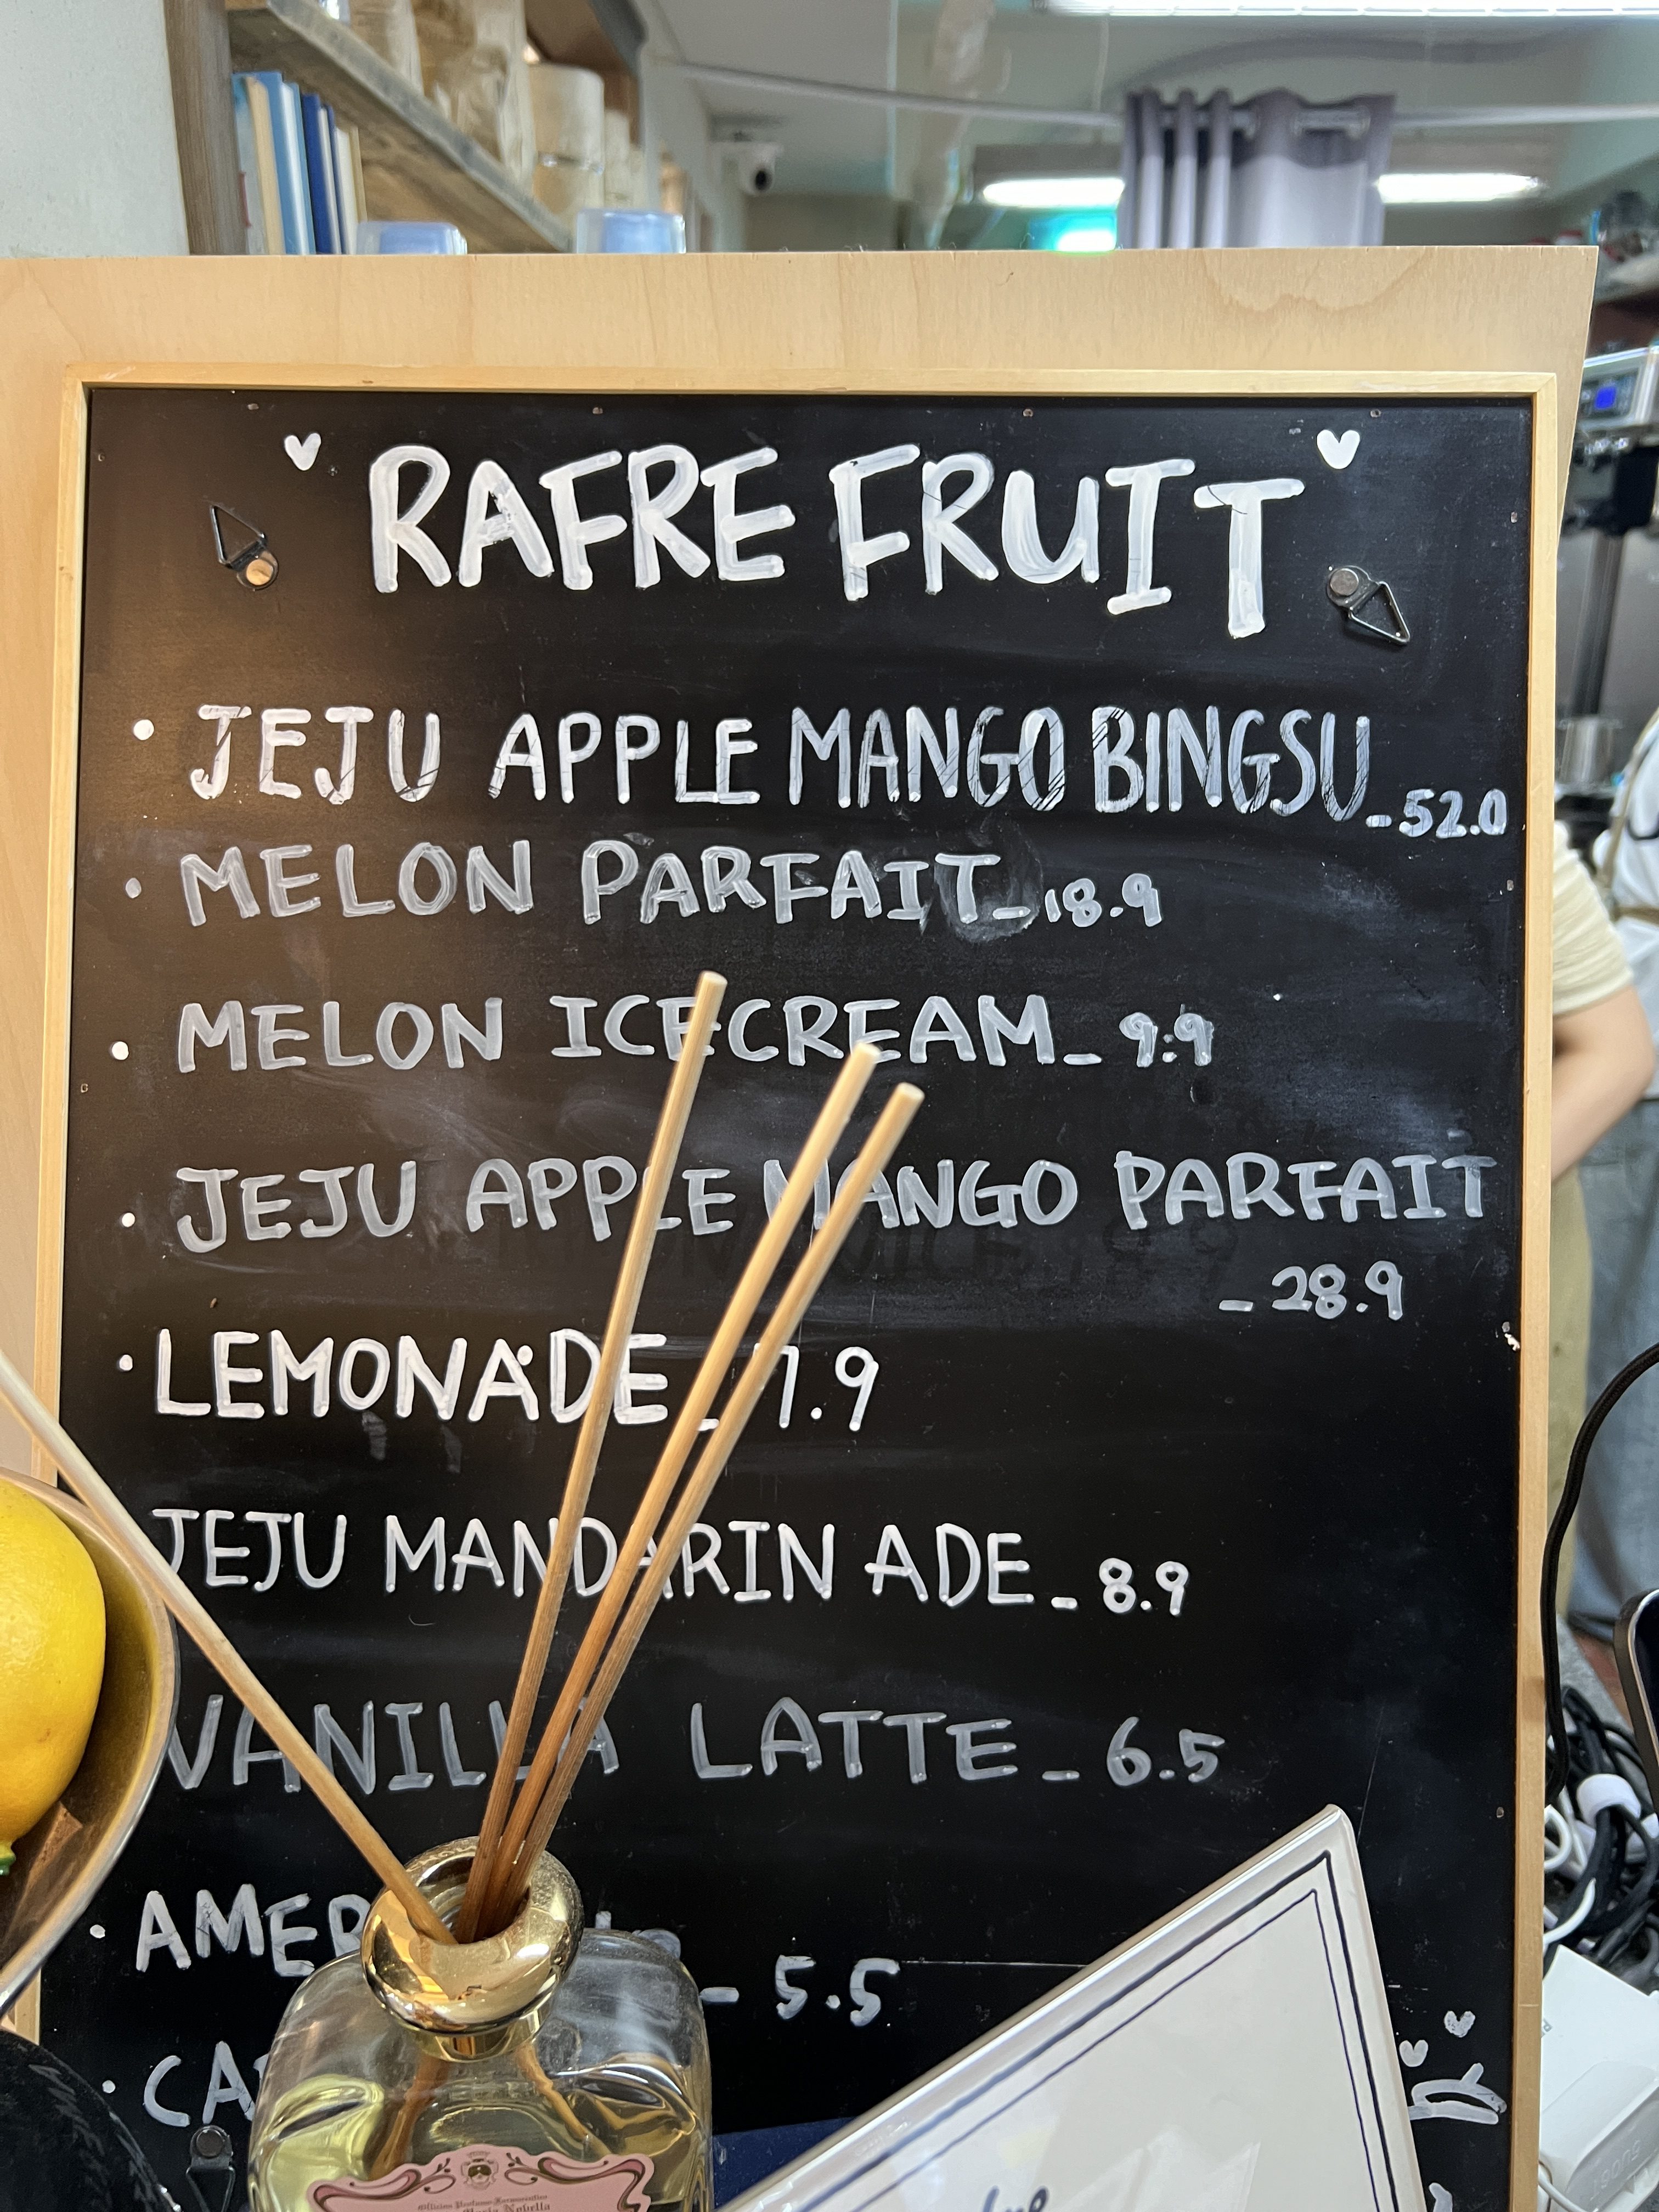 RAFRE FRUIT
· JEJU APPLE MANGO BINGSU_52.0
· MELON PARFAIT_18.9
· MELON ICECREAM_9.9
· JEJU APPLE MANGO PARFAIT
_28.9
· LEMONADE_7.9
JEJU MANDARIN ADE_8.9
VANILLA LATTE_6.5
· AMER _ 5.5
· CA